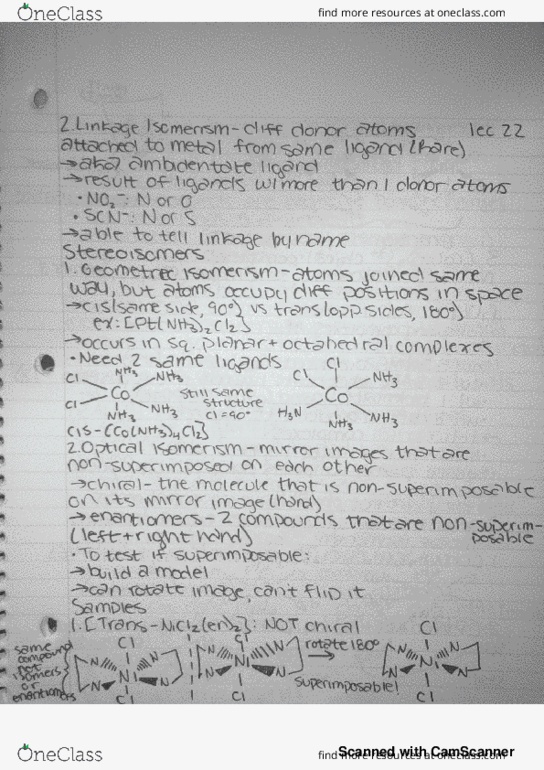 OneClass
find more resources at oneclass.com
2. Linkage Isomerism - diff donor atoms lec 22
attached to metal from same ligand (rare)
→ aka ambidentate ligand
→ result of ligands w/ more than 1 donor atoms
• NO₂⁻: N or O
• SCN⁻: N or S
→ able to tell linkage by name
Stereoisomers
1. Geometric Isomerism - atoms joined same
way, but atoms occupy diff positions in space
→ cis (same side, 90°) vs trans (opp sides, 180°)
ex: [Pt(NH₃)₂Cl₂]
→ occurs in sq. planar + octahedral complexes
• Need 2 same ligands
Cl NH₃ NH₃ Cl Co NH₃ NH₃
still same structure Cl=90°
Cl Cl NH₃ Co H₃N NH₃ NH₃
cis-[Co(NH₃)₄Cl₂]
2. Optical Isomerism - mirror images that are
non-superimposed on each other
→ chiral - the molecule that is non-superimposable
on its mirror image (hand)
→ enantiomers - 2 compounds that are non-superim-
(left + right hand) posable
• To test if superimposable:
→ build a model
→ can rotate image, can't flip it
Samples
1. [Trans-NiCl₂(en)₂]: NOT chiral
same compound not isomers or enantiomers
Cl N N Ni N N Cl
Cl N N Ni N N Cl
rotate 180° →
superimposable!
Cl N N Ni N N Cl
OneClass
find more resources at oneclass.com
Scanned with CamScanner